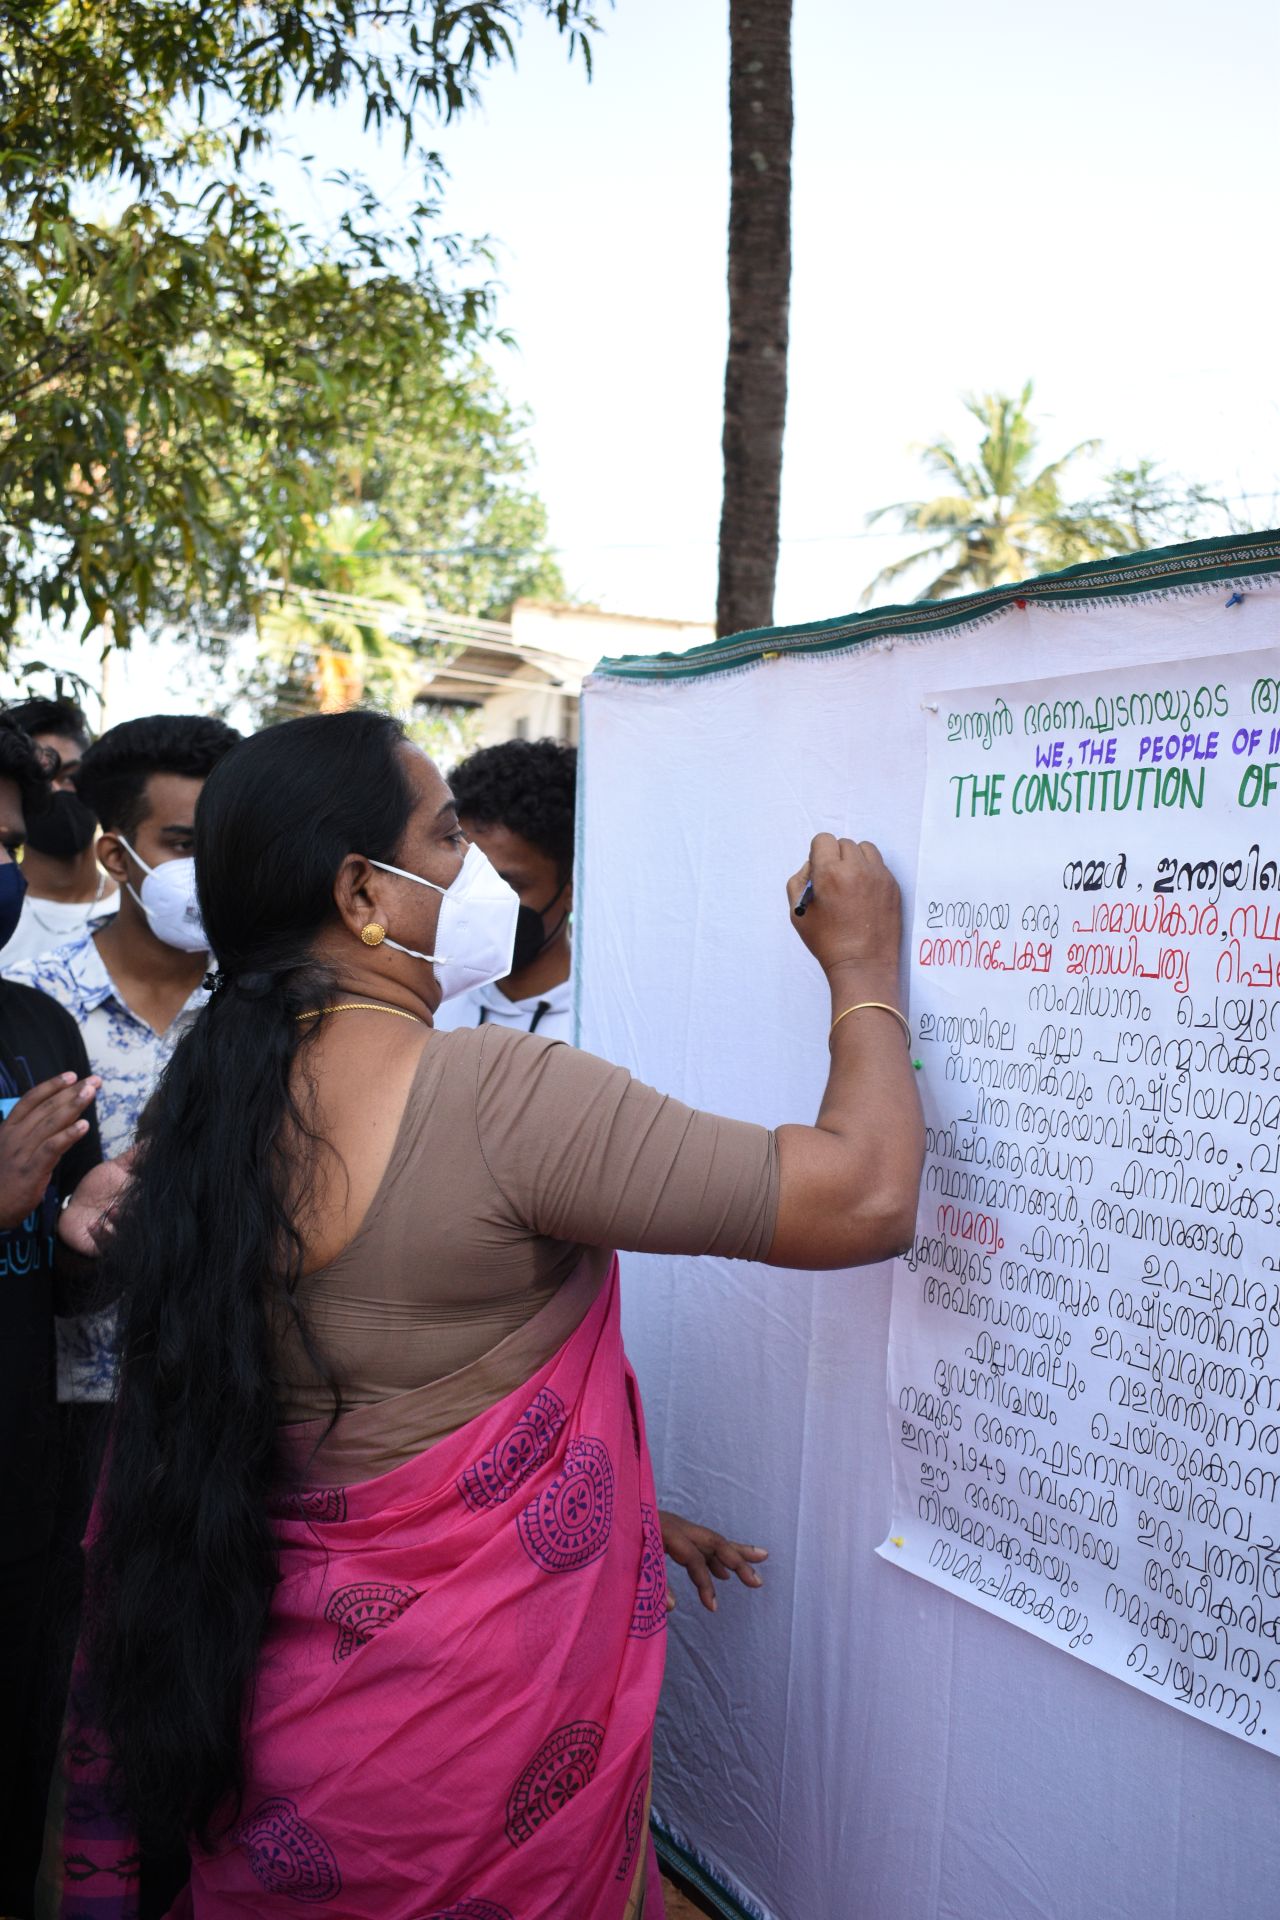 ഇന്ത്യൻ ഭരണഘടനയുടെ ആ
WE, THE PEOPLE OF I
THE CONSTITUTION OF
നമ്മൾ, ഇന്ത്യയിലെ
ഇന്ത്യയെ ഒരു പരമാധികാര, സ്ഥ
മതനിരപേക്ഷ ജനാധിപത്യ റിപ്പ
സംവിധാനം ചെയ്യു
ഇന്ത്യയിലെ എല്ലാ പൗരന്മാർക്കും
സാമ്പത്തികവും രാഷ്ട്രീയവുമ
ചിന്ത ആശയാവിഷ്കാരം, വി
നിഷ്ഠ, ആരാധന എന്നിവയ്ക്കു
സ്ഥാനമാനങ്ങൾ, അവസരങ്ങൾ എ
സമത്വം എന്നിവ ഉറപ്പുവരു
വ്യക്തിയുടെ അന്തസ്സും രാഷ്ട്രത്തിന്റെ
അഖണ്ഡതയും ഉറപ്പുവരുത്തുന്ന
എല്ലാവരിലും വളർത്തുന്നത
ദൃഢനിശ്ചയം ചെയ്തുകൊണ്ട
നമ്മുടെ ഭരണഘടനാസഭയിൽവച്ച
ഇന്ന്, 1949 നവംബർ ഇരുപത്തിയ
ഈ ഭരണഘടനയെ അംഗീകരിക്ക
നിയമമാക്കുകയും നമുക്കായിത്തന്നെ
സമർപ്പിക്കുകയും ചെയ്യുന്നു.